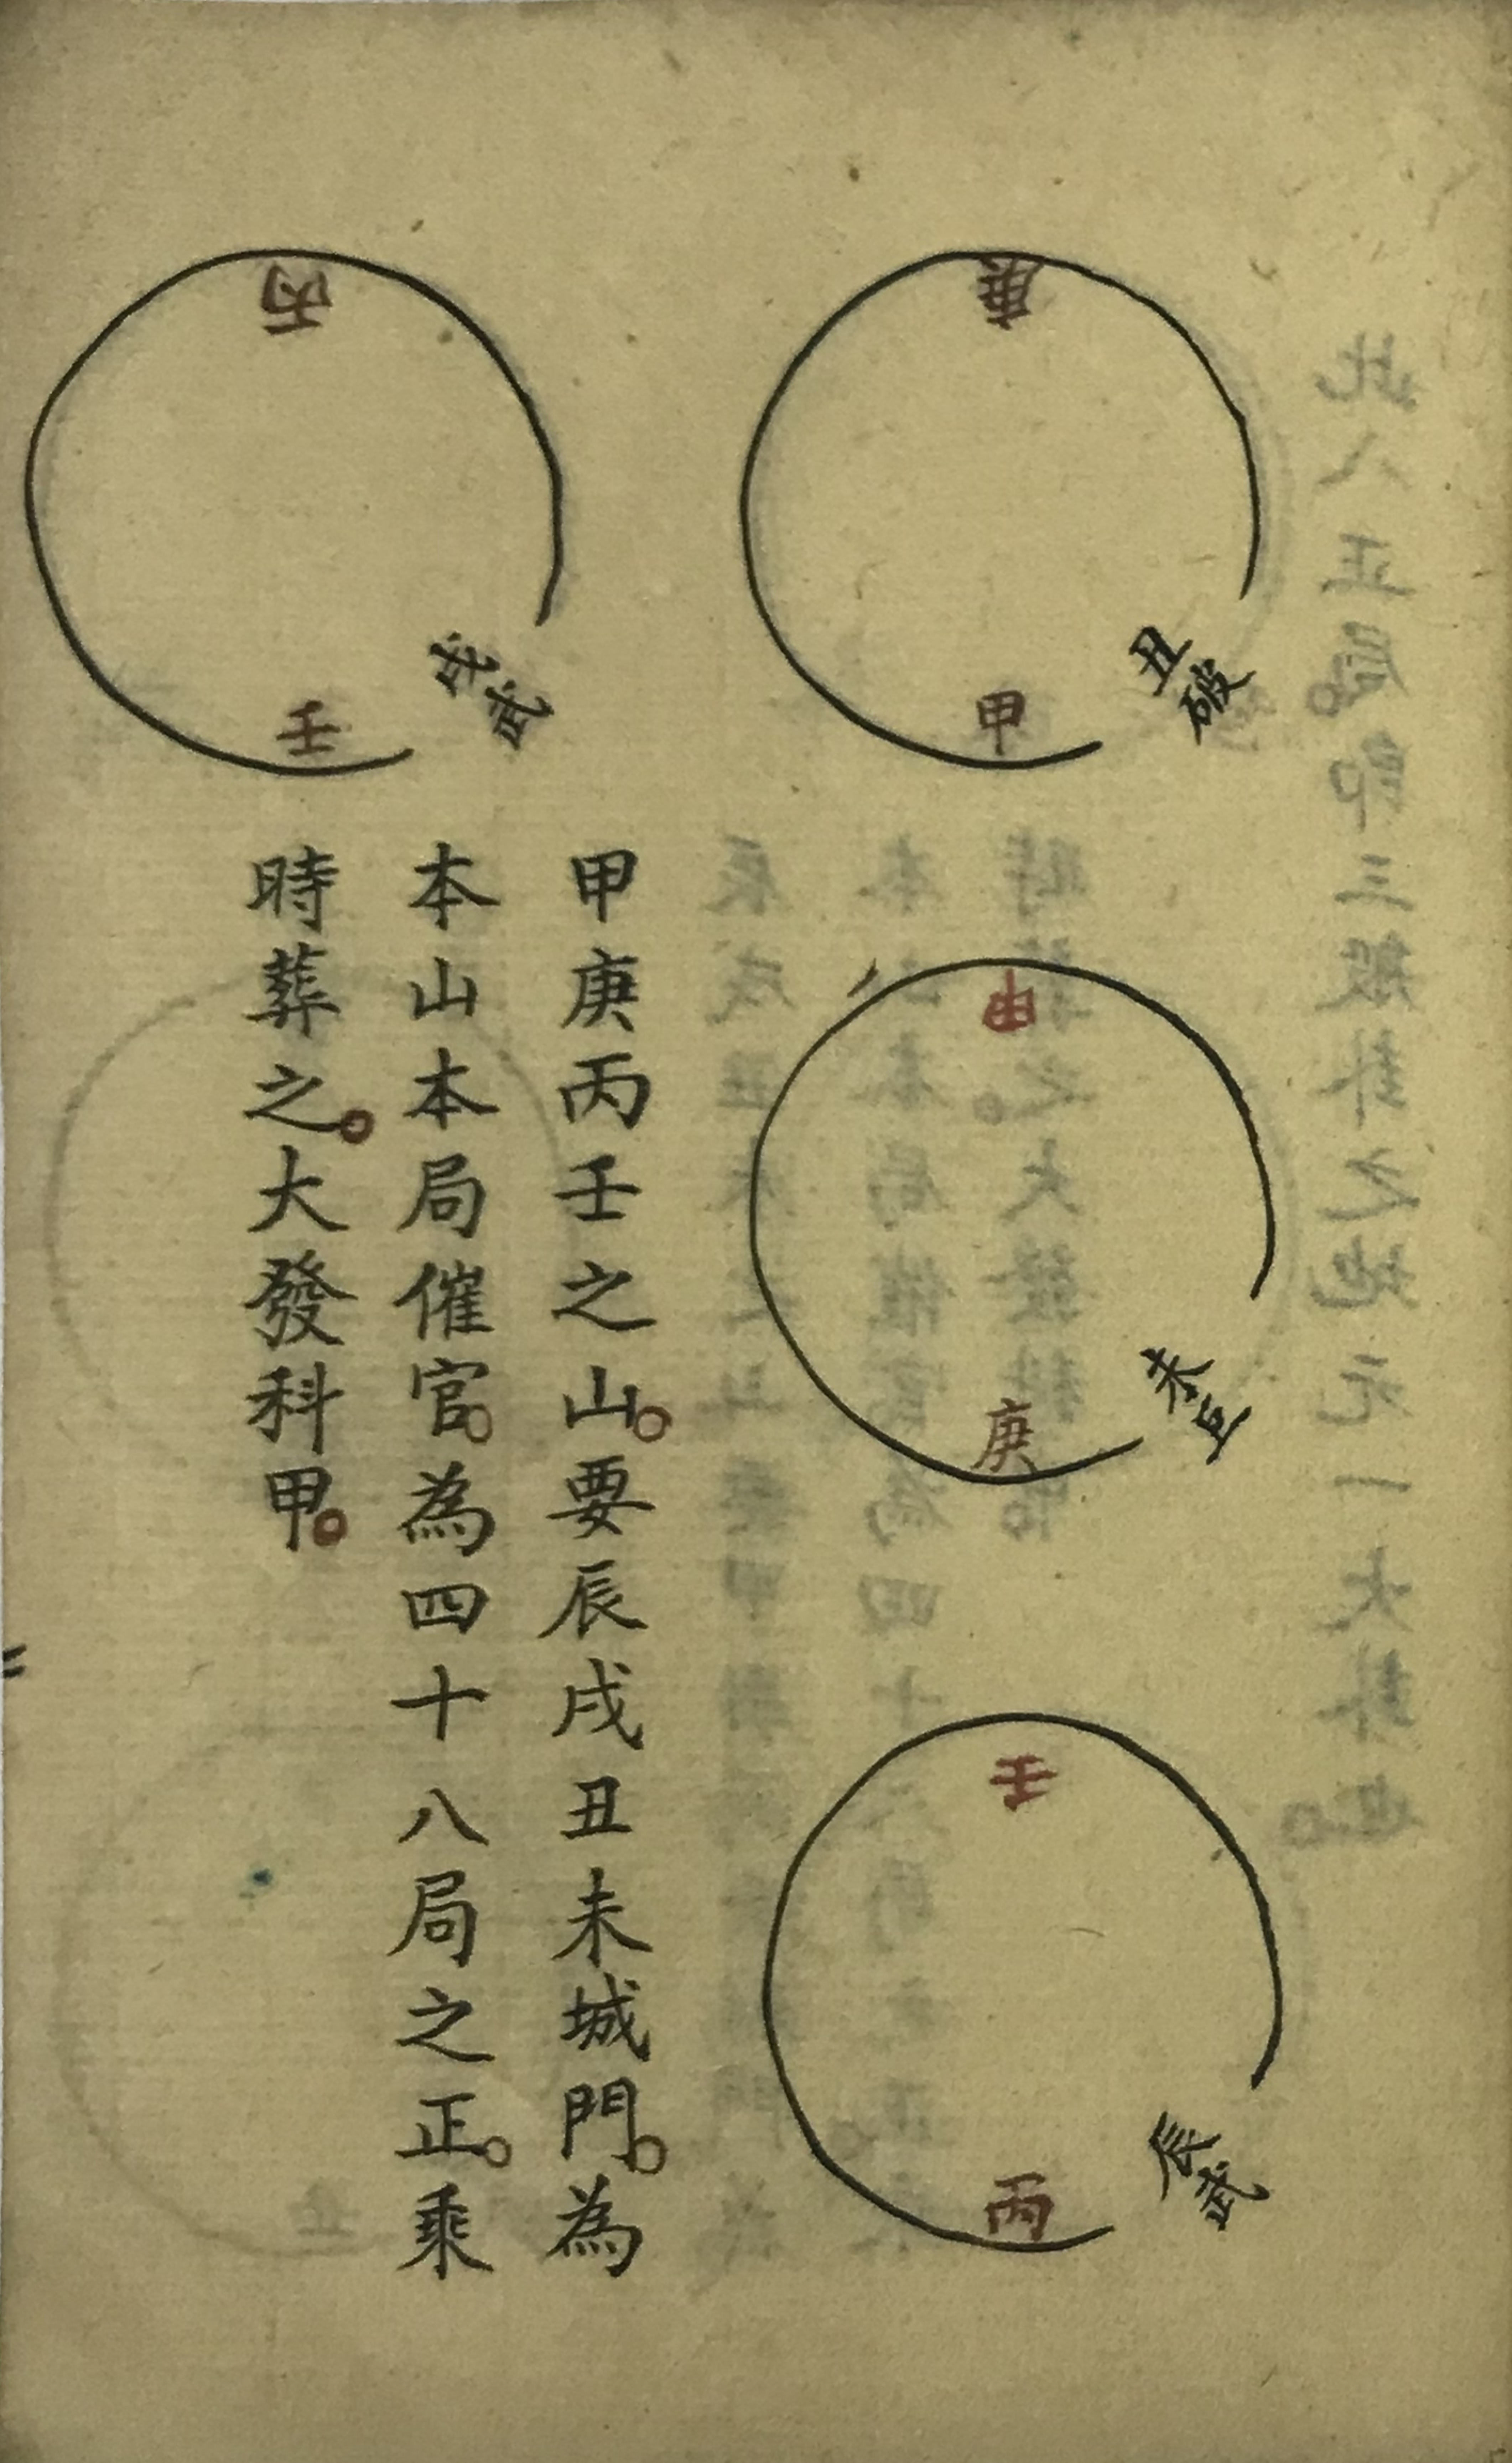 庚
甲
丑破
甲
庚
未巨
壬
丙
辰武
丙
壬
戌武
甲庚丙壬之山。要辰戌丑未城門。為
本山本局催官。為四十八局之正。乘
時葬之。大發科甲。